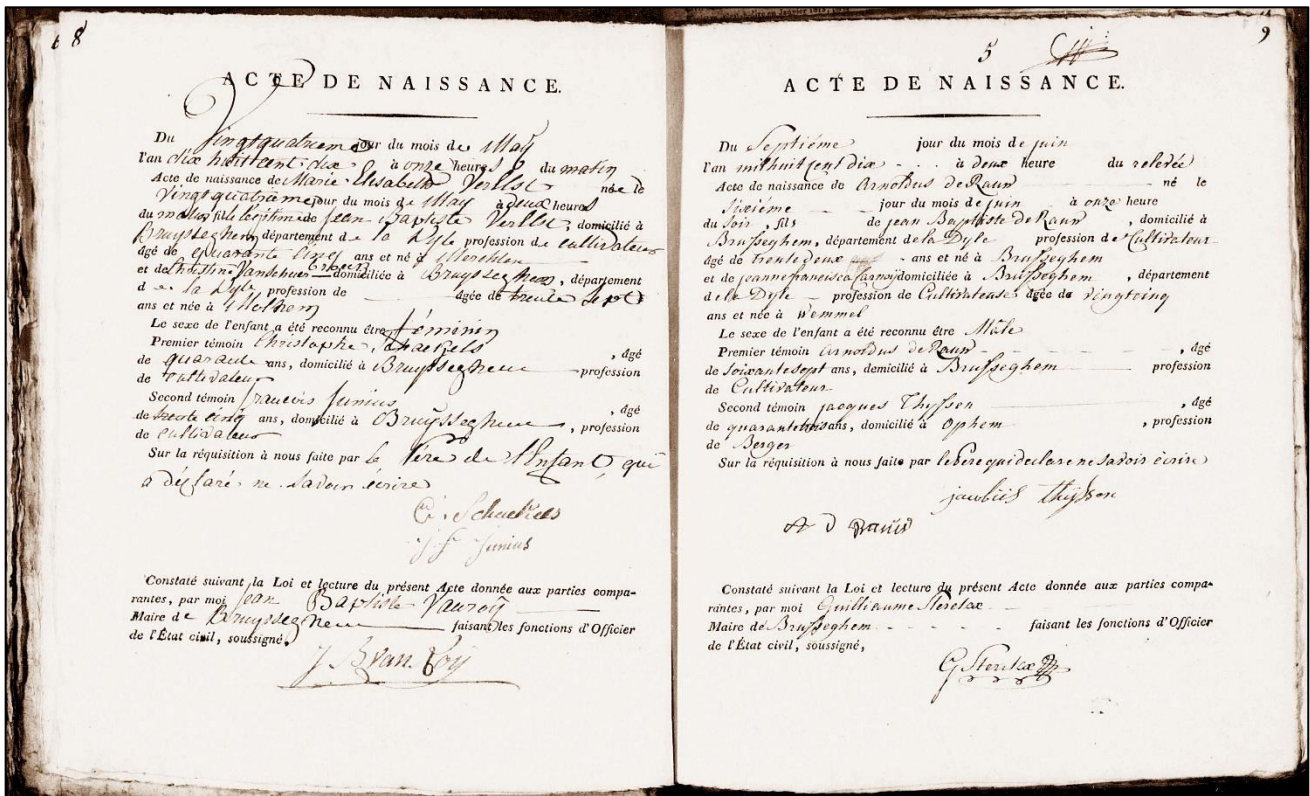 8
ACTE DE NAISSANCE.
Du Vingtquatrieme jour du mois de May
l'an dix huit cent dix à onze heures du matin
Acte de naissance de Marie Elisabeth Verelst née le
Vingt quatrieme jour du mois de May à deux heures
du matin fille légitime de Jean Baptiste Verelst, domicilié à
Bruysseghem, département de la Dyle profession de cultivateur
âgé de quarante cinq ans et né à Merchtem
et de Christine Vanden domiciliée à Bruysseghem, département
de la Dyle, profession de âgée de trente sept
ans et née à
Le sexe de l'enfant a été reconnu être féminin
Premier témoin Christophe Schaekels, âgé
de quarante ans, domicilié à Bruysseghem profession
de cultivateur
Second témoin francois Junius, âgé
de trente cinq ans, domicilié à Bruysseghem, profession
de cultivateur
Sur la réquisition à nous faite par le Père de l'Enfant, qui
a déclaré ne savoir écrire
C. Schaekels
J F Junius
Constaté suivant la Loi et lecture du présent Acte donnée aux parties compa-
rantes, par moi Jean Baptiste Vanroÿ
Maire de Bruysseghem faisant les fonctions d'Officier
de l'État civil, soussigné,
J B Van Roÿ
5
9
ACTE DE NAISSANCE.
Du Septiéme jour du mois de juin
l'an mil huit cent dix à deux heure du relevée
Acte de naissance de Arnoldus de Raun né le
sixiéme jour du mois de juin à onze heure
du soir, fils de jean Baptiste de Raun, domicilié à
Brusseghem, département de la Dyle profession de Cultivateur
âgé de trente deux ans et né à Brusseghem
et de jeanne francisca Carmoÿ domiciliée à Brusseghem, département
de la Dyle profession de Cultivateuse âgée de vingtcinq
ans et née à Wemmel
Le sexe de l'enfant a été reconnu être Mâle
Premier témoin Arnoldus de Raun, âgé
de soixante sept ans, demicilié à Brusseghem profession
de Cultivateur
Second témoin jacques Thyssen, âgé
de quarante trois ans, domicilié à Ophem, profession
de Berger
Sur la réquisition à nous faite par le Pere qui declare ne savoir écrire
jacobus thÿssen
A D Rauis
Constaté suivant la Loi et lecture du présent Acte donnée aux parties compa-
rantes, par moi Guilliaume Sterckx
Maire de Brusseghem faisant les fonctions d'Officier
de l'État civil, soussigné,
G Sterckx